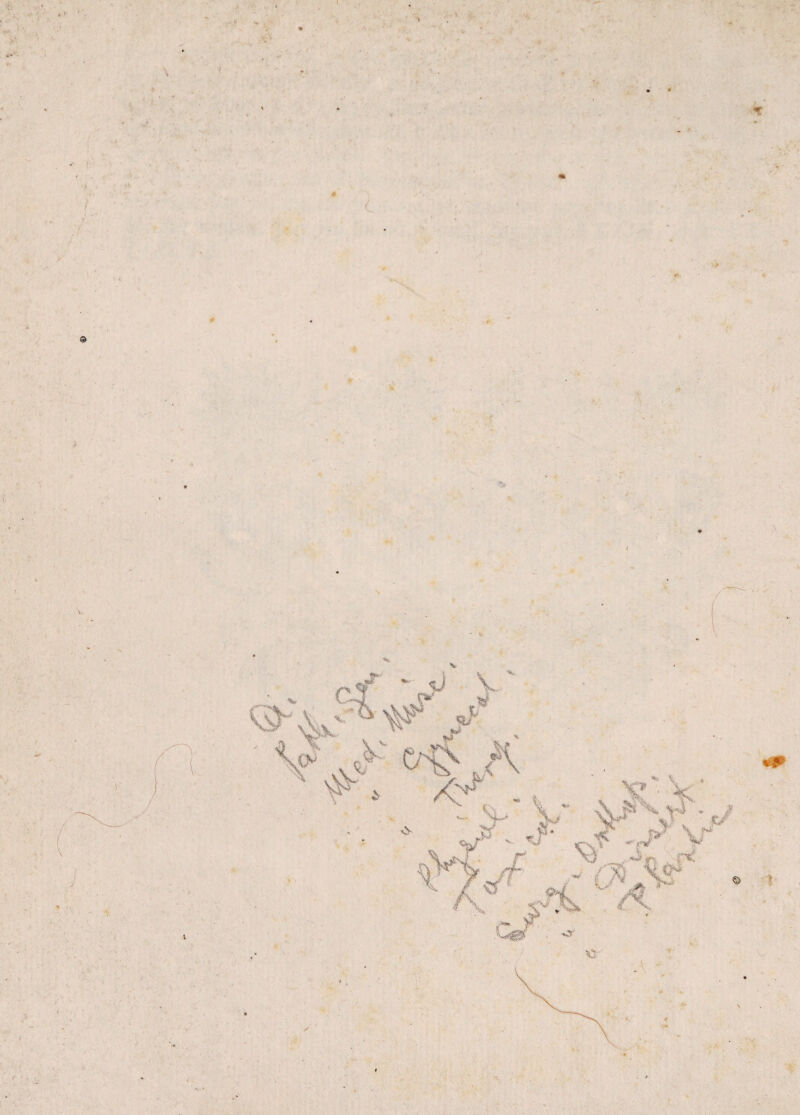 Path. Gen.
Med. Misc.
" Gynecol.
" Therap.
Physiol.
Toxicol.
Surg. Orthop.
" Dissert.
" Plastic